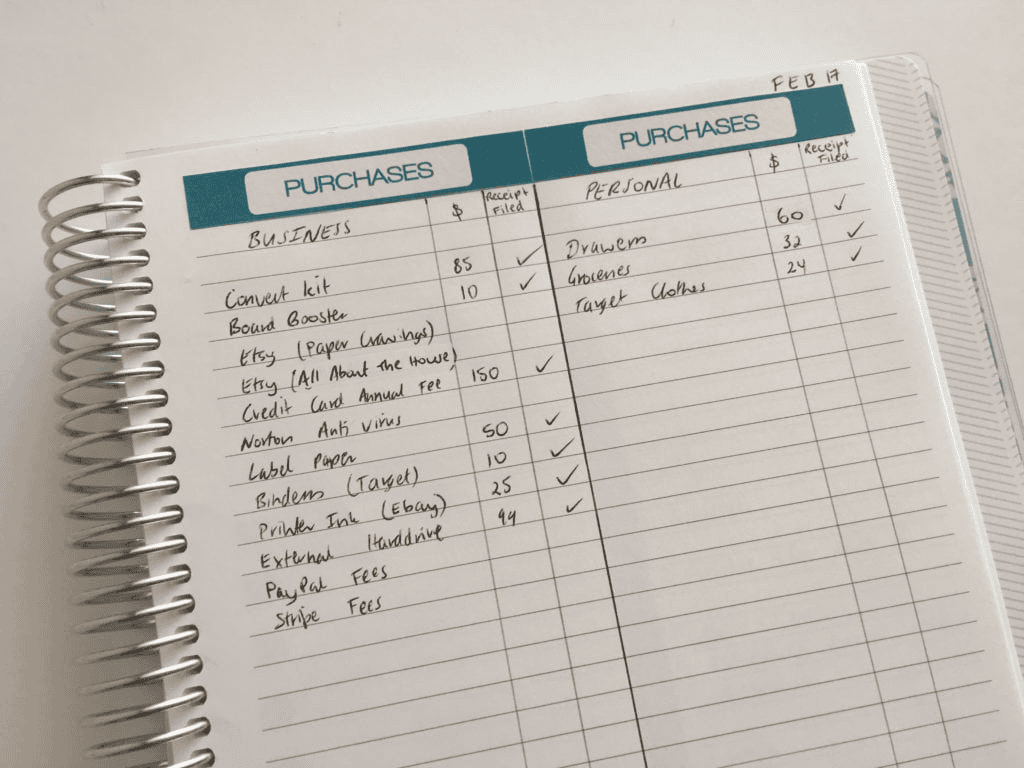 FEB 17
PURCHASES
BUSINESS $ Receipt Filed
Convert kit 85 ✓
Board Booster 10 ✓
Etsy (Paper Cravings)
Etsy (All About The House)
Credit Card Annual Fee 150 ✓
Norton Anti Virus
Label Paper 50 ✓
Binders (Target) 10 ✓
Printer Ink (Ebay) 25 ✓
External Harddrive 94 ✓
PayPal Fees
Stripe Fees
PURCHASES
PERSONAL $ Receipt Filed
Drawers 60 ✓
Groceries 32 ✓
Target Clothes 24 ✓